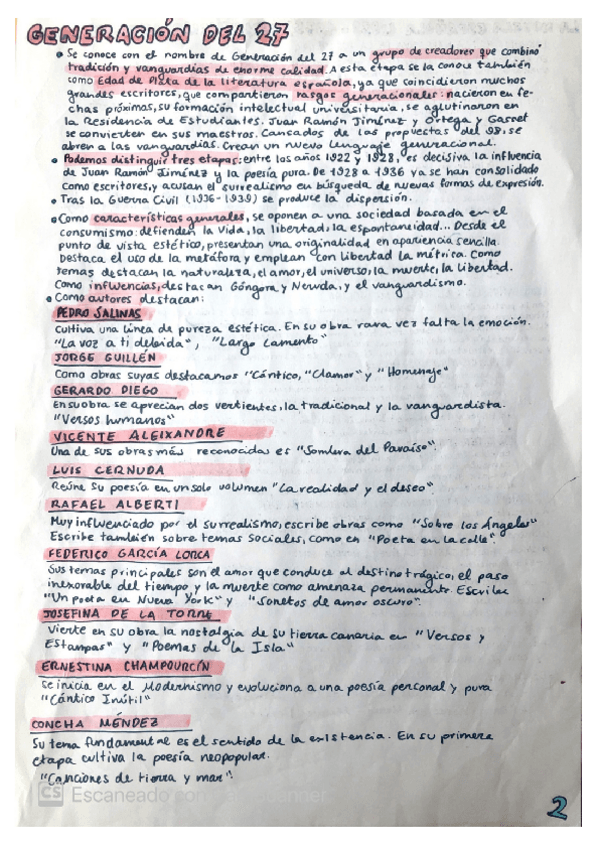 GENERACIÓN DEL 27
• Se conoce con el nombre de Generación del 27 a un grupo de creadores que combinó
tradición y vanguardias de enorme calidad. A esta etapa se la conoce también
como Edad de Plata de la literatura española, ya que coincidieron muchos
grandes escritores, que compartieron rasgos generacionales: nacieron en fe-
chas próximas, su formación intelectual universitaria, se aglutinaron en
la Residencia de Estudiantes. Juan Ramón Jiménez y Ortega y Gasset
se convierten en sus maestros. Cansados de las propuestas del 98, se
abren a las vanguardias. Crean un nuevo lenguaje generacional.
• Podemos distinguir tres etapas: entre los años 1922 y 1928, es decisiva la influencia
de Juan Ramón Jiménez y la poesía pura. De 1928 a 1936 ya se han consolidado
como escritores, y acusan el surrealismo en búsqueda de nuevas formas de expresión.
• Tras la Guerra Civil (1936-1939) se produce la dispersión.
• Como características generales, se oponen a una sociedad basada en el
consumismo: defienden la vida, la libertad, la espontaneidad... Desde el
punto de vista estético, presentan una originalidad en apariencia sencilla.
Destaca el uso de la metáfora y emplean con libertad la métrica. Como
temas destacan la naturaleza, el amor, el universo, la muerte, la libertad.
Como influencias, destacan Góngora y Neruda, y el vanguardismo.
• Como autores destacan:
PEDRO SALINAS
Cultiva una línea de pureza estética. En su obra rara vez falta la emoción.
"La voz a ti debida", "Largo Lamento"
JORGE GUILLÉN
Como obras suyas destacamos "Cántico, "Clamor" y "Homenaje"
GERARDO DIEGO
En su obra se aprecian dos vertientes, la tradicional y la vanguardista.
"Versos humanos"
VICENTE ALEIXANDRE
Una de sus obras más reconocidas es "Sombra del Paraíso".
LUIS CERNUDA
Reúne su poesía en un solo volumen "La realidad y el deseo".
RAFAEL ALBERTI
Muy influenciado por el surrealismo, escribe obras como "Sobre los Ángeles"
Escribe también sobre temas sociales, como en "Poeta en la calle".
FEDERICO GARCÍA LORCA
Sus temas principales son el amor que conduce al destino trágico, el paso
inexorable del tiempo y la muerte como amenaza permanente. Escribe
"Un poeta en Nueva York" y "Sonetos de amor oscuro".
JOSEFINA DE LA TORRE
Vierte en su obra la nostalgia de su tierra canaria en "Versos y
Estampas" y "Poemas de la Isla"
ERNESTINA CHAMPOURCÍN
Se inicia en el Modernismo y evoluciona a una poesía personal y pura
"Cántico Inútil"
CONCHA MÉNDEZ
Su tema fundamental es el sentido de la existencia. En su primera
etapa cultiva la poesía neopopular.
"Canciones de tierra y mar".
CS Escaneado con
2